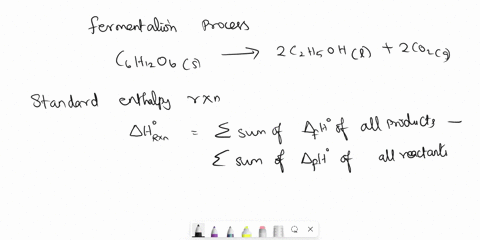 fermentation process
C6H12O6 (s) ⟶ 2C2H5OH(l) + 2CO2(g)
Standard enthalpy rxn
ΔH°Rxn = Σ sum of ΔfH° of all products —
Σ sum of ΔfH° of all reactants